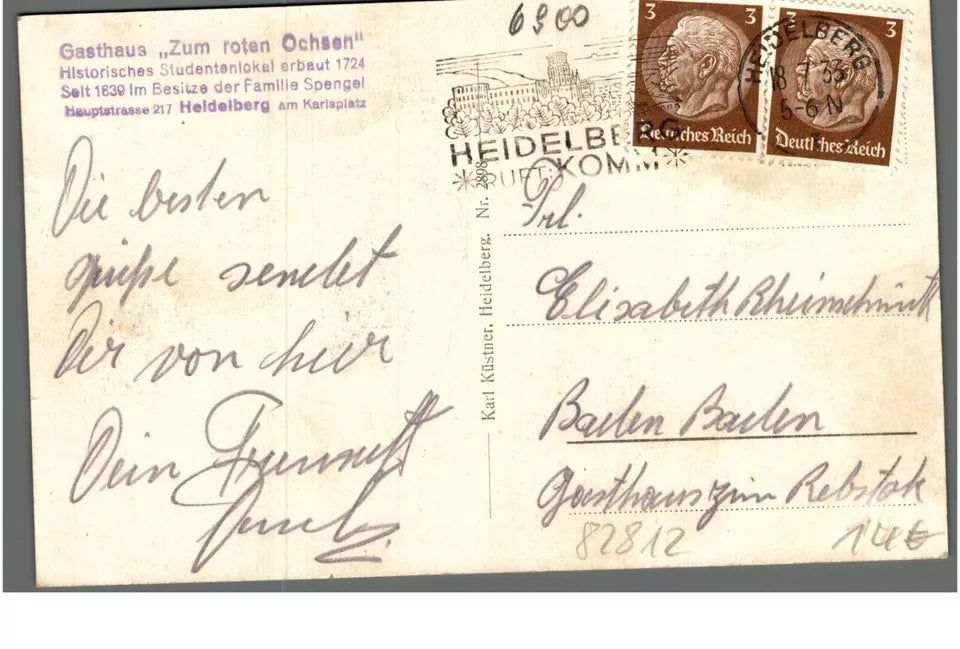 6900
Gasthaus „Zum roten Ochsen"
Historisches Studentenlokal erbaut 1724
Seit 1839 im Besitze der Familie Spengel
Hauptstrasse 217 Heidelberg am Karlsplatz
HEIDELBERG
RUFT: KOMM
3 3
Deutsches Reich
3
Deutsches Reich
HEIDELBERG
18 7 33
5-6 N
Die besten
grüße sendet
Dir von hier
Dein
Karl Küstner, Heidelberg. Nr. 2898
Frl.
Elisabeth Rheinschmitt
Baden Baden
Gasthaus zum Rebstok
82812
14€